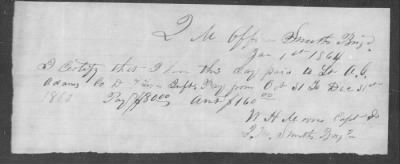 Q M Office Smiths Brig.
Jan 1st 1864
I Certify that I have this day paid to Lt A. C.
Adams Co D 7 Capts Pay from Oct 31 to Dec 31st
1863 Pay $80.00 Amt $160.00
W H Capt &
Q.M. Smiths Brig.